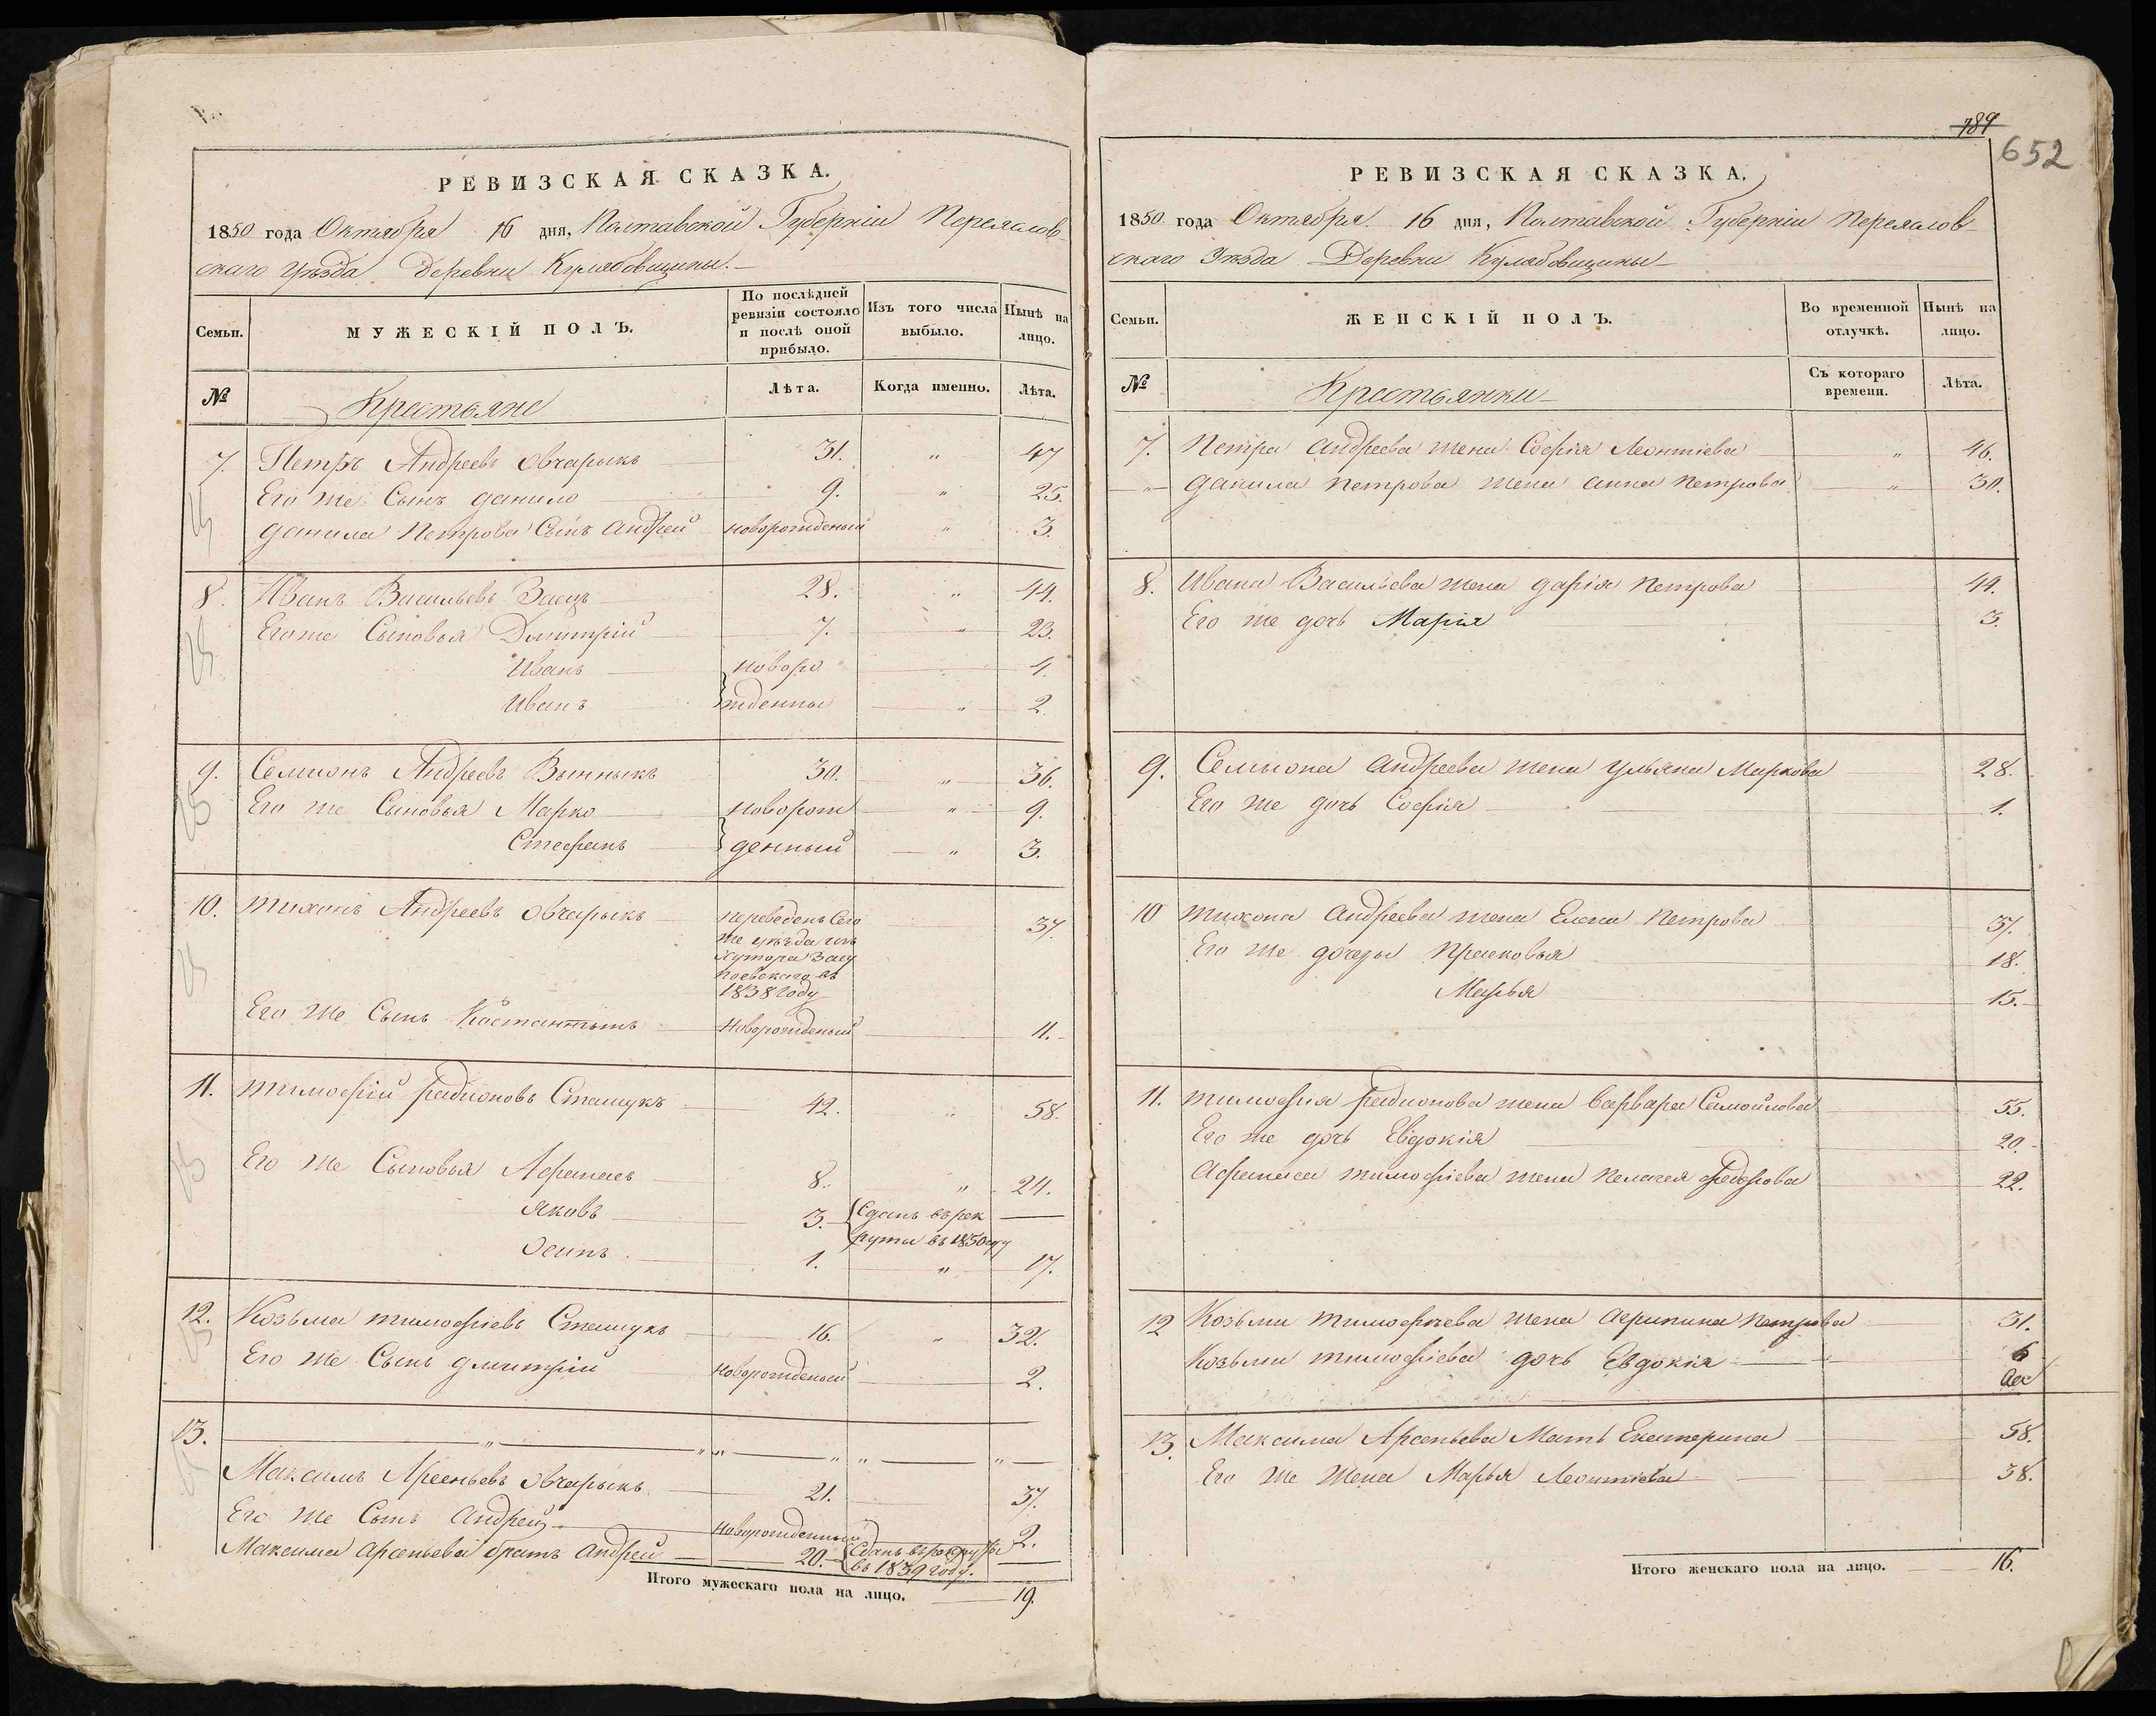 РЕВИЗСКАЯ СКАЗКА.
1850 года Октября 16 дня, Полтавской Губерніи Переяслов-
скаго Уѣзда Деревни Кулябовщины.
Семьи.
МУЖЕСКІЙ ПОЛЪ.
По послѣдней ревизіи состояло и послѣ оной прибыло.
Изъ того числа выбыло.
Нынѣ на лицо.
№
Крестьяне
Лѣта.
Когда именно.
Лѣта.
7. Петръ Андреевъ Овчарыкъ 31. " 47
Его же Сынъ Данило 9. " 25.
Данила Петрова Сынъ Андрей новорожденый " 3.
8. Иванъ Васильевъ Заецъ 28. " 44.
Егоже Сыновья Дмитрій 7. " 23.
Иванъ новоро 4.
Иванъ жденны " 2.
9. Семионъ Андреевъ Вынныкъ 30. " 36.
Его же Сыновья Марко новорож " 9.
Стефанъ денный " 3.
10. Тихонъ Андреевъ Овчарыкъ переведенъ Сего 37.
же уѣзда изъ
хутора
въ
1838 году
Его же Сынъ Костантынъ Новорожденый 11.
11. Тимофій Радионовъ Сташукъ 42. " 58.
Его же Сыновья Афанасъ 8. " 24.
Яковъ 3. Сданъ въ рек
руты въ 1850 году
Осипъ 1. " 17.
12. Козьма Тимофіевъ Сташукъ 16. " 32.
Его же Сынъ Дмитрій Новорожденый 2.
13.
Максимъ Арсеньевъ Овчарыкъ 21. 37.
Его же Сынъ Андрей Новорожденный 2.
Максима Арсеньева братъ Андрей 20. Сданъ въ рекруты
въ 1839 году.
Итого мужескаго пола на лицо. 19.
789
652
РЕВИЗСКАЯ СКАЗКА.
1850 года Октября 16 дня, Полтавской Губерніи Переяслов-
скаго Уѣзда Деревни Кулябовщины
Семьи.
ЖЕНСКІЙ ПОЛЪ.
Во временной отлучкѣ.
Нынѣ на лицо.
№
Крестьянки
Съ котораго времени.
Лѣта.
7. Петра Андреева жена Софія Леонтіева " 46.
" Данила Петрова жена Анна Петрова " 30.
8. Ивана Васильева жена Дарія Петрова 44.
Его же дочь Марія 3.
9. Семиона Андреева жена Ульяна Маркова 28.
Его же дочь Софія 1.
10 Тихона Андреева жена Елена Петрова 37.
Его же дочеры Прасковья 18.
Марья 15.
11. Тимофія Радионова жена Варвара Самойлова 55.
Его же дочь Евдокія 20.
Афанаса Тимофіева жена Пелагея Федорова 22.
12 Козьми Тимофіева жена Агрипина Петрова 31.
Козьми Тимофіева дочь Евдокія " 6
13. Максима Арсеньева Мать Екатерина 58.
Его же Жена Марья Леонтіева 38.
Итого женскаго пола на лицо. 16.